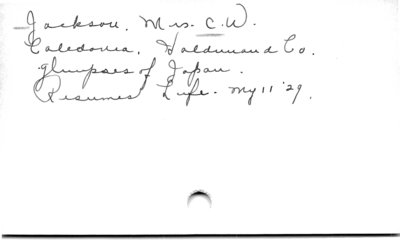 Jackson, Mrs. C. W.
Caledonia, Haldimand Co.
Glimpses of Japan.
Resumes Life. My 11 '29.